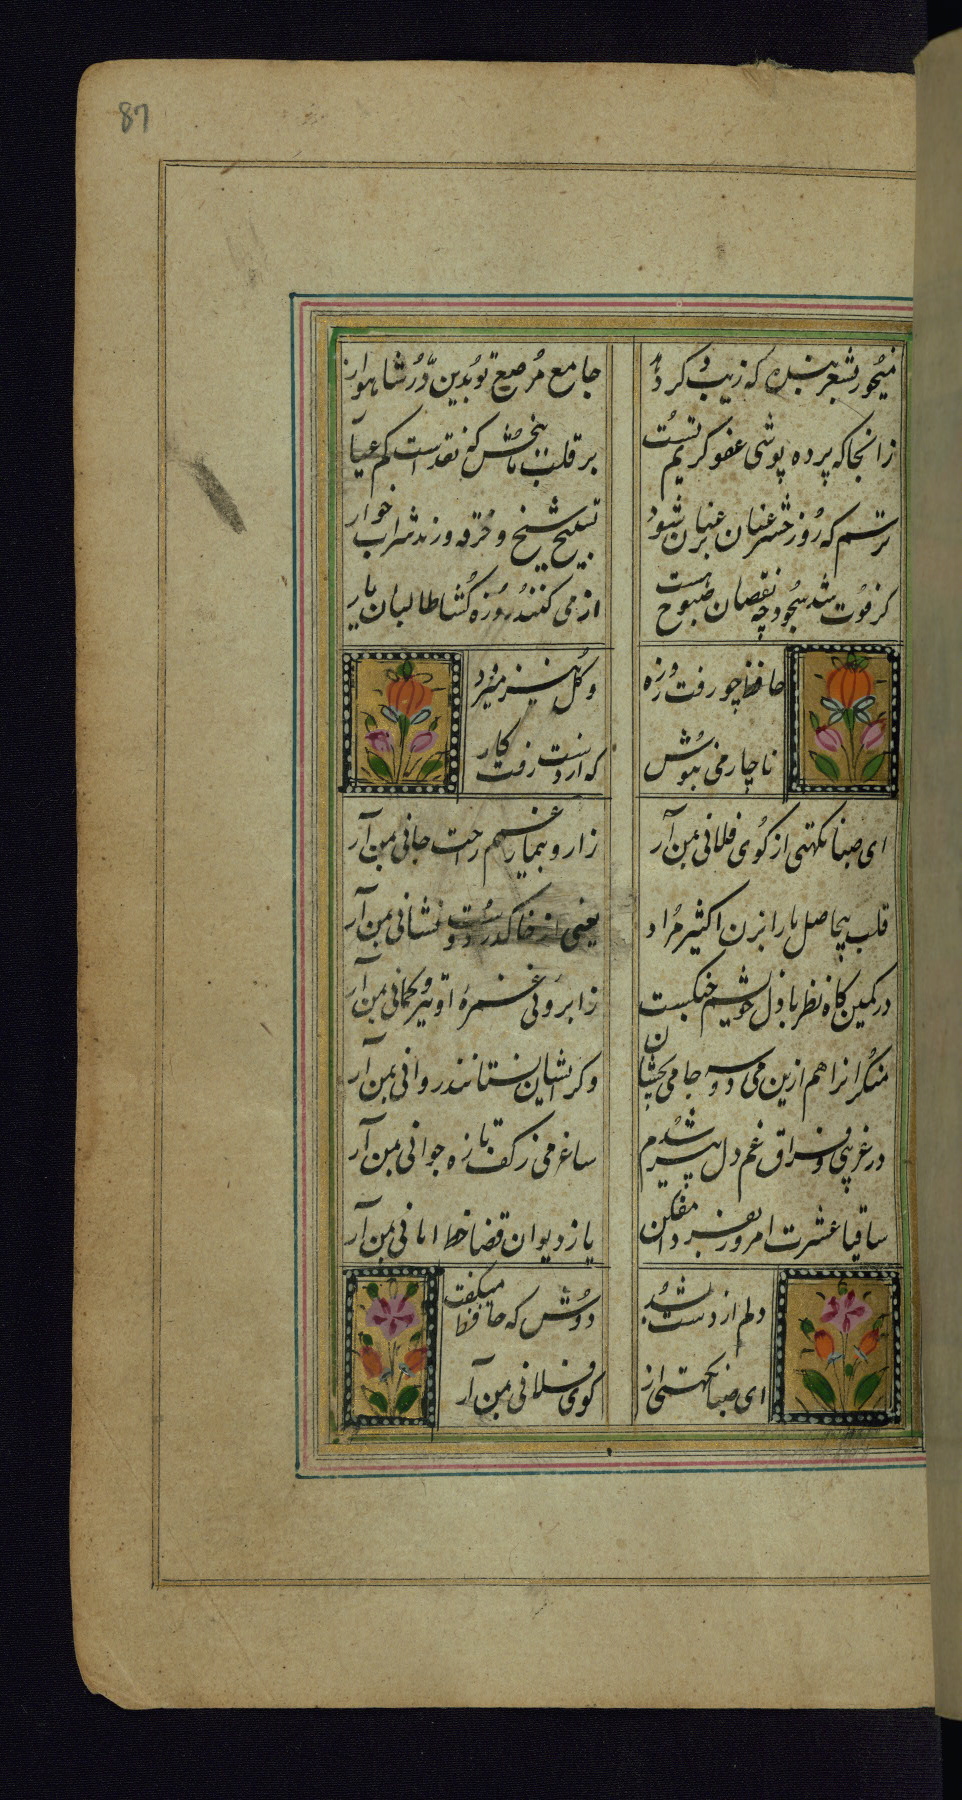 87
میخور بشعر بنده که زیبد کرد جامع مرصع تو بدین در شاهوار
زانجا که پرده پوشی عفو کریم تست بر قلب ما ببخش که نقدیست کم عیار
ترسم که روز حشر عنان بر عنان شود تسبیح شیخ و خرقه و رند شراب خوار
کر فوت شد سجود چه نقصان صبوح هست از می کنند روزه کشا طالبان یار
حافظ چو رفت روزه و کل نیز میرود
ناچار می بنوش که از دست رفت کار
ای صبا نکهتی از کوی فلانی بمن آر زار و بیمار غمم راحت جانی بمن آر
قلب بیحاصل ما را بزن اکثیر مراد یعنی از خاک در دوست نشانی بمن آر
در کمین کاه نظر با دل خویشم جنکست ز ابروی غمزه او تیر و کمانی بمن آر
منکرانرا هم ازین می دو سه جامی بچشان وکر ایشان نستانند روانی بمن آر
در غریبی و فراق غم دل پیر شدم ساغر می ز کف تازه جوانی بمن آر
ساقیا عشرت امروز بفردا مفکن یا ز دیوان قضا خط امانی بمن آر
دلم از دست بشد دوش که حافظ میکفت
ای صبا نکهتی از کوی فلانی بمن آر